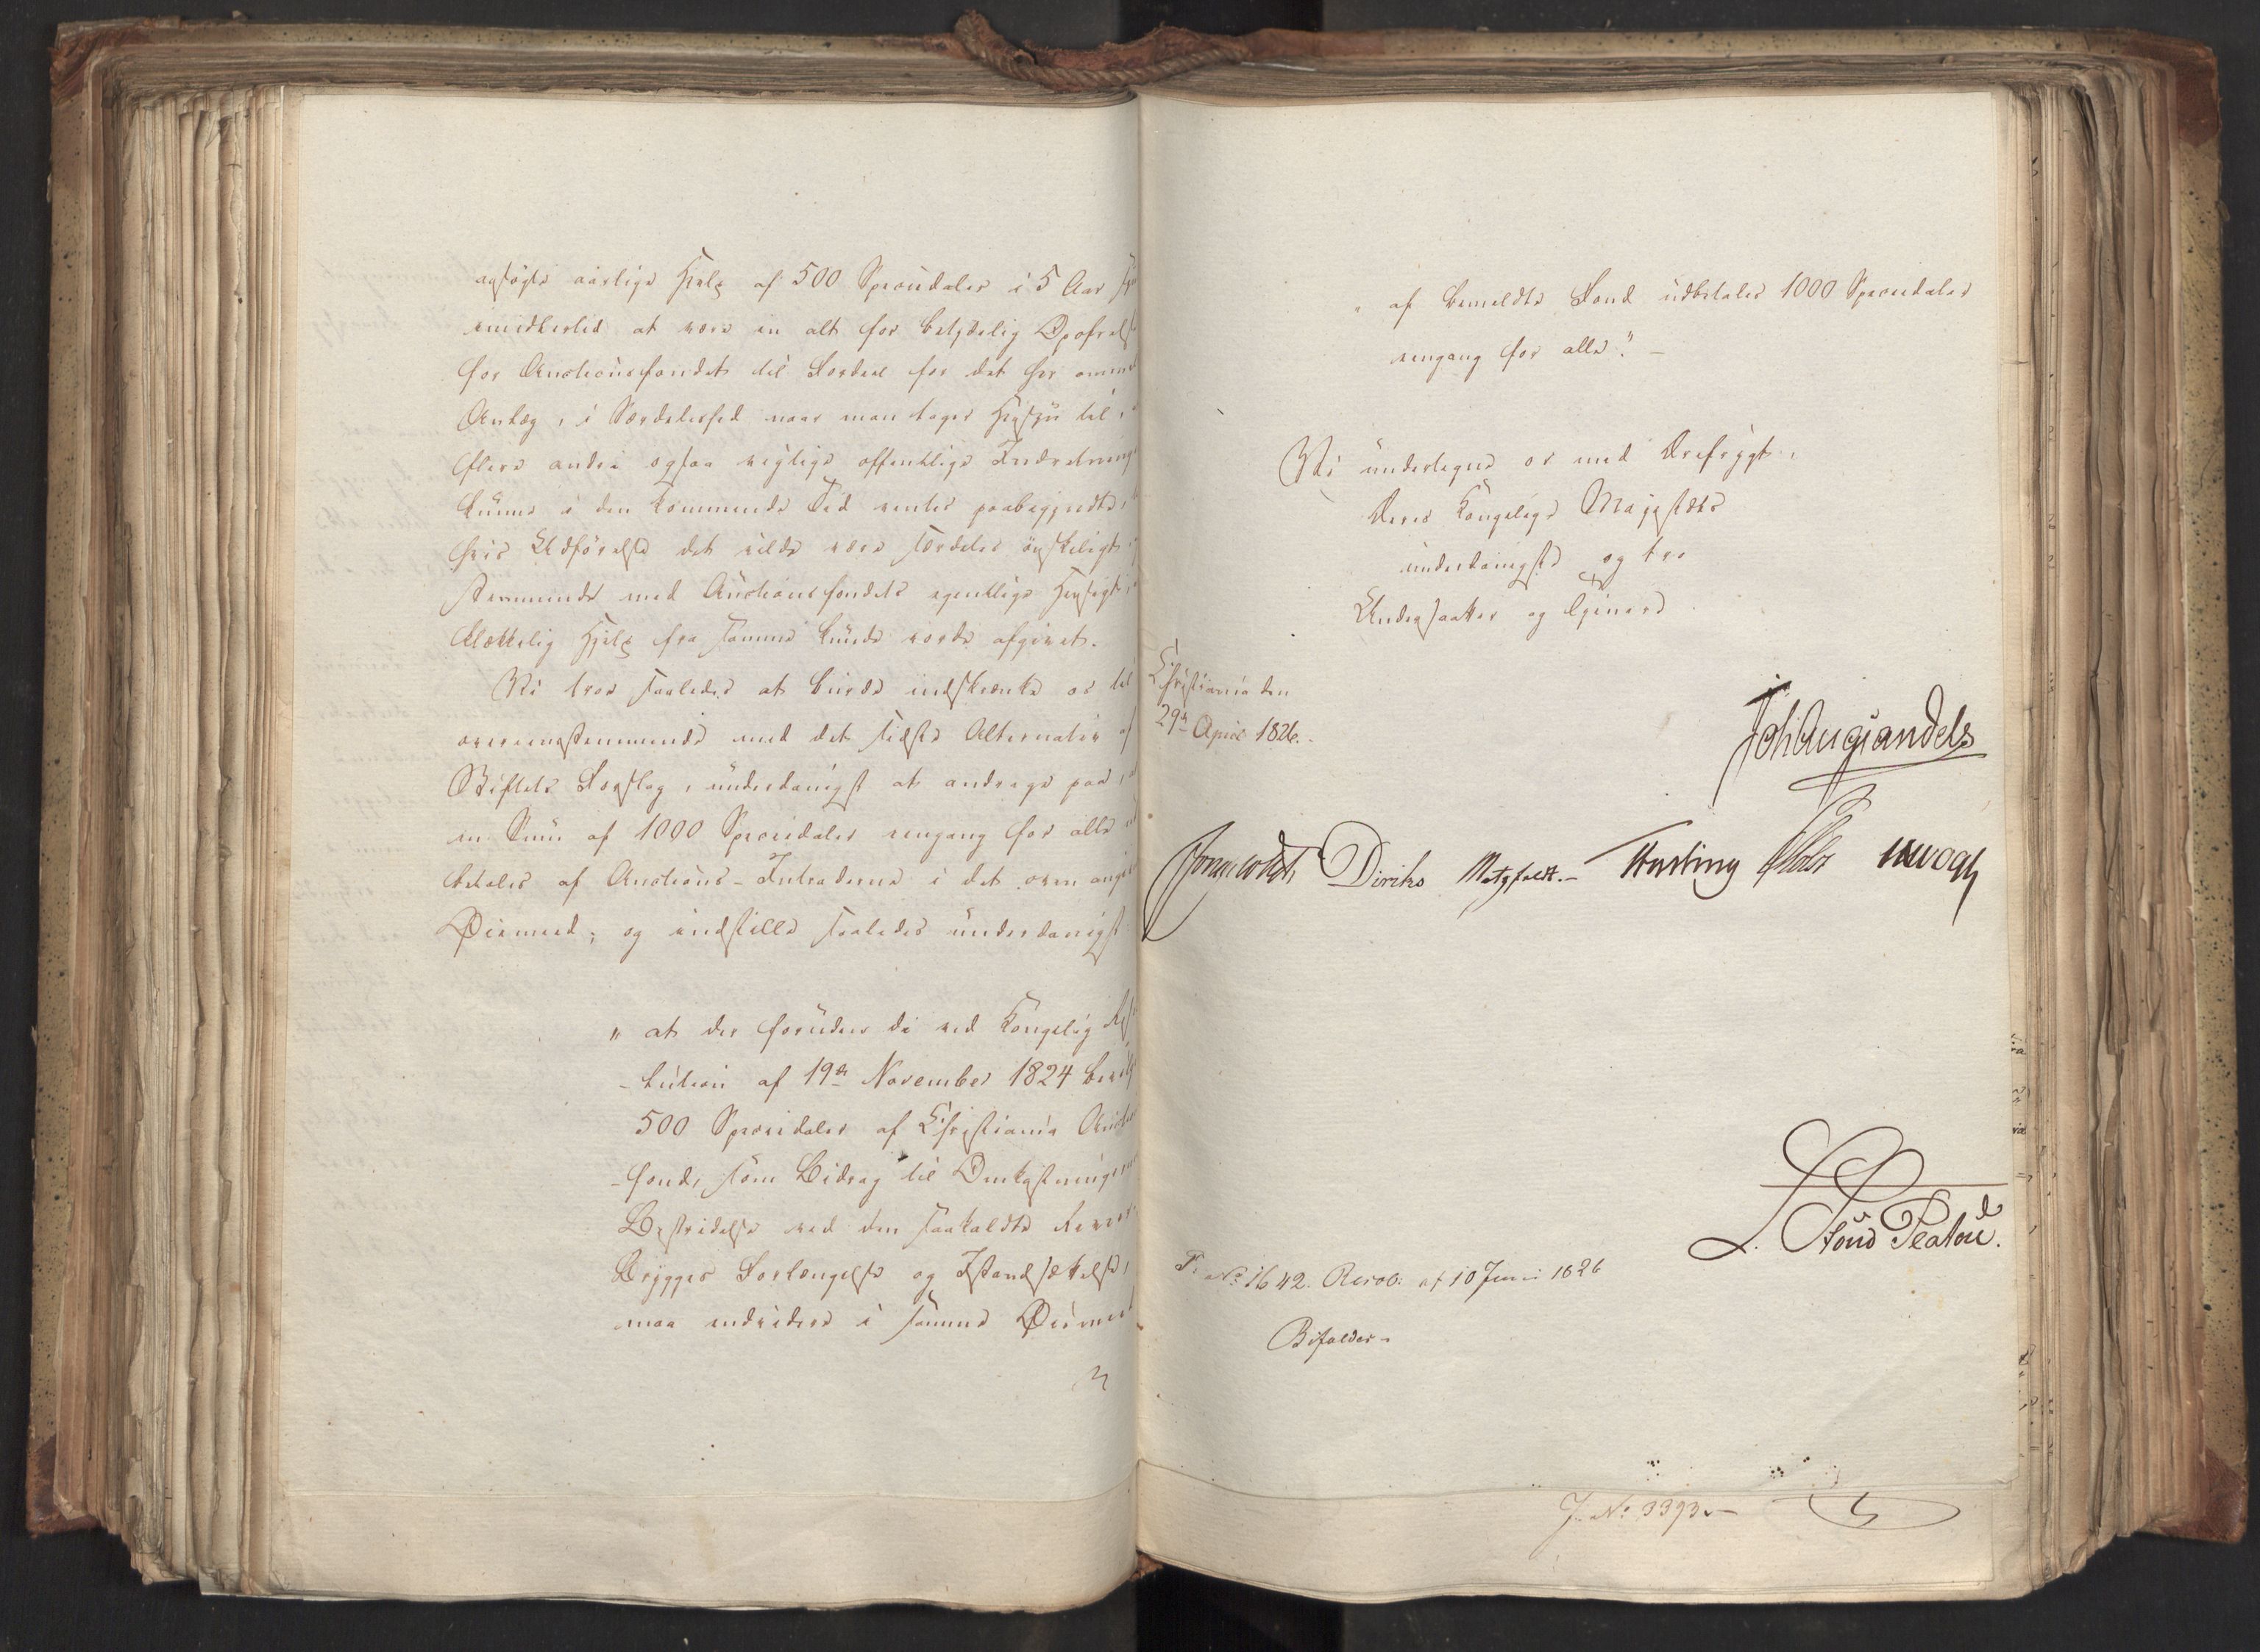 ansøgte aarlige Hjelp af 500 Speciedaler i 5 Aar
imidlertid at være en alt for betydelig Opofrelse
for Auctionsfondet til Fordeel for det her
Anlæg, i Særdeleshed naar man tager Hensyn til,
flere andre ogsaa vigtige offentlige Indretninger
kunne i den kommende Tid ventes paabegyndte,
hvis Udførelse det vilde være særdeles ønskeligt
stemmende med Auctionsfondets egentlige Hensigt,
klækkelig Hjelp fra samme kunde vorde afgivet.
Vi troe saaledes at burde indskrænke os til
overeensstemmende med det sidste Alternativ af
Stiftets Forslag, underdanigst at andrage paa,
en Sum af 1000 Speciedaler eengang for alle
betales af Auctions-Intraderne i det oven
Øiemeed; og indstille saaledes underdanigst
" at der foruden de ved Kongelig Reso
-lution af 19de November 1824
500 Speciedaler af Christiania
-fond, som Bidrag til Omkostningernes
Bestridelse ved den saakaldte
Brygges Forlængelse og Istandsættelse,
maa endvidere i samme Øiemeed
" af bemeldte Fond udbetales 1000 Speciedaler
eengang for alle." –
Vi undertegne os med Ærefrygt,
Deres Kongelige Majestæts
underdanigste og troe
Undersaatter og Tjenere
Christiania den
29de April 1826.
Joh Aug Sandels
Diriks Motzfeldt.– JHVogt
L. Stoud Platou.
P. No: 1642. Resol: af 10 Juni 1826
Bifaldes –
J. No: 3393. –